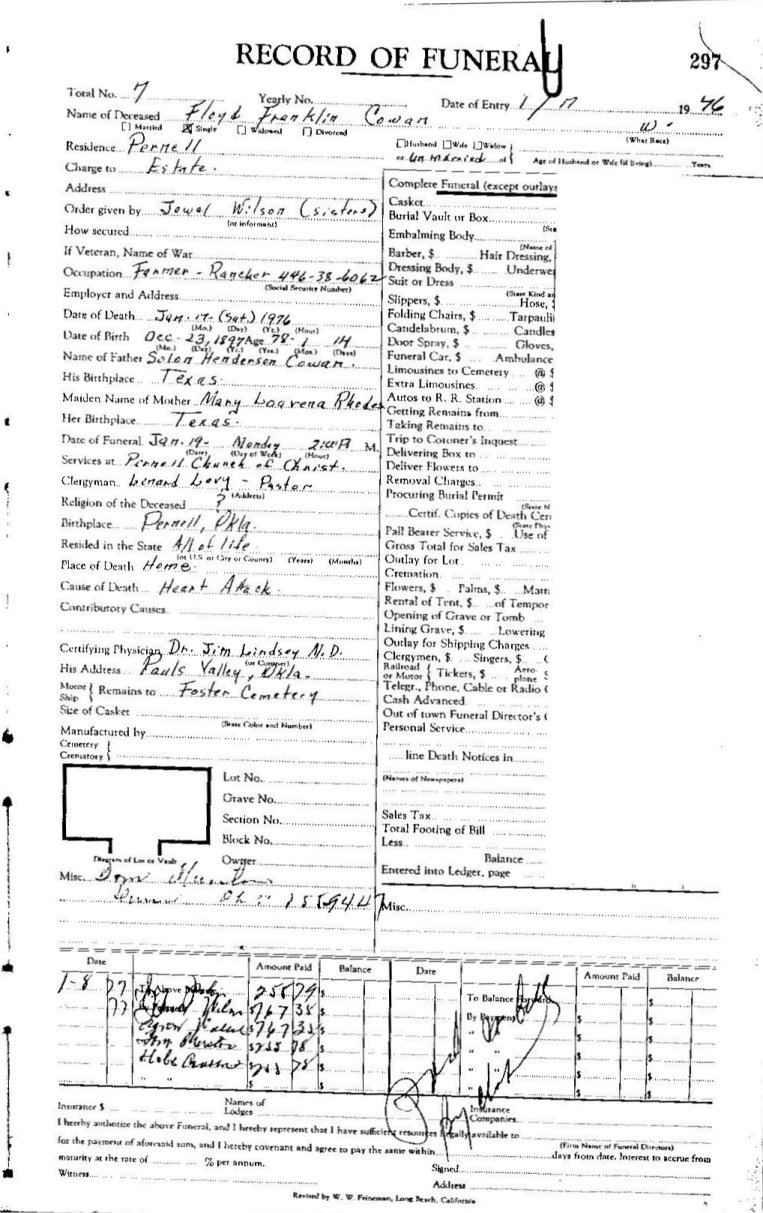 RECORD OF FUNERAL
297
Total No. 7 Yearly No. Date of Entry 1/17 1976
Name of Deceased Floyd Franklin Cowan W. (What Race)
[ ] Married [X] Single [ ] Widowed [ ] Divorced
Residence Pernell
[ ] Husband [ ] Wife [ ] Widow or Unmarried of Age of Husband or Wife (if living) Years
Charge to Estate.
Address
Order given by Jewel Wilson (sisters)
(or informant)
How secured
If Veteran, Name of War
Occupation Farmer - Rancher 446-38-6062
(Social Security Number)
Employer and Address
Date of Death Jan. 17 - (Sat.) 1976
(Mo.) (Day) (Yr.) (Hour)
Date of Birth Dec. 23, 1897 Age 78 - 14
(Mo.) (Day) (Yr.) (Yrs.) (Mos.) (Days)
Name of Father Solon Henderson Cowan.
His Birthplace Texas.
Maiden Name of Mother Mary Loavena Rhodes
Her Birthplace Texas.
Date of Funeral Jan. 19 - Monday 2:00 P M.
(Date) (Day of Week) (Hour)
Services at Pernell Church of Christ.
Clergyman Lenard Levy - Pastor
(Address)
Religion of the Deceased ?
Birthplace Pernell, Okla.
Resided in the State All of life
(or U.S. or City or County) (Years) (Months)
Place of Death Home.
Cause of Death Heart Attack.
Contributory Causes
Certifying Physician Dr. Jim Lindsey M.D.
(or Coroner)
His Address Pauls Valley, Okla.
Motor Ship Remains to Foster Cemetery
Size of Casket
(State Color and Number)
Manufactured by
Cemetery
Crematory
Lot No.
Grave No.
Section No.
Block No.
Diagram of Lot or Vault
Owner
Misc.
Complete Funeral (except outlays
Casket
Burial Vault or Box
Embalming Body
(Name of
Barber, $ Hair Dressing,
Dressing Body, $ Underwe
Suit or Dress
(State Kind an
Slippers, $ Hose, $
Folding Chairs, $ Tarpauli
Candelabrum, $ Candles
Door Spray, $ Gloves,
Funeral Car, $ Ambulance
Limousines to Cemetery @ $
Extra Limousines @ $
Autos to R. R. Station @ $
Getting Remains from
Taking Remains to
Trip to Coroner's Inquest
Delivering Box to
Deliver Flowers to
Removal Charges
Procuring Burial Permit
(State N
Certif. Copies of Death Cert
(State Phys
Pall Bearer Service, $ Use of
Gross Total for Sales Tax
Outlay for Lot
Cremation
Flowers, $ Palms, $ Matt
Rental of Tent, $ of Tempor
Opening of Grave or Tomb
Lining Grave, $ Lowering
Outlay for Shipping Charges
Clergymen, $ Singers, $
Railroad or Motor Tickets, $ Aeroplane $
Telegr., Phone, Cable or Radio
Cash Advanced
Out of town Funeral Director's
Personal Service
line Death Notices in
(Names of Newspapers)
Sales Tax
Total Footing of Bill
Less
Balance
Entered into Ledger, page
Misc.
Date Amount Paid Balance Date Amount Paid Balance
1-8 77 $
77 $767 35 $
$767 33 $
$255 78 $
$
To Balance Forward $
By Payment $ $
" " $ $
Insurance $ Names of Lodges Insurance Companies
I hereby authorize the above Funeral, and I hereby represent that I have sufficient resources legally available to
(Firm Name of Funeral Directors)
for the payment of aforesaid sum, and I hereby covenant and agree to pay the same within days from date. Interest to accrue from
maturity at the rate of % per annum. Signed
Witness Address
Revised by W. W. Frineman, Long Beach, California